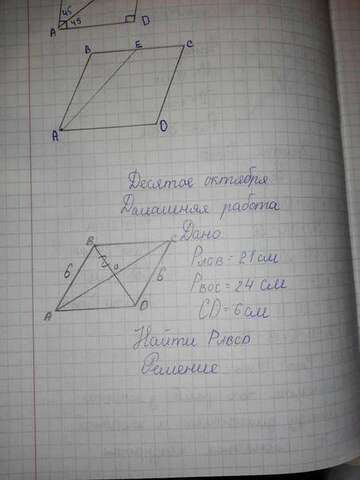 45
45
A D
B E C
A D
Десятое октября
Домашняя работа
B C Дано
6 O 6
PAOB = 21 см
PBOC = 24 см
CD = 6 см
A D
Найти PABCD
Решение